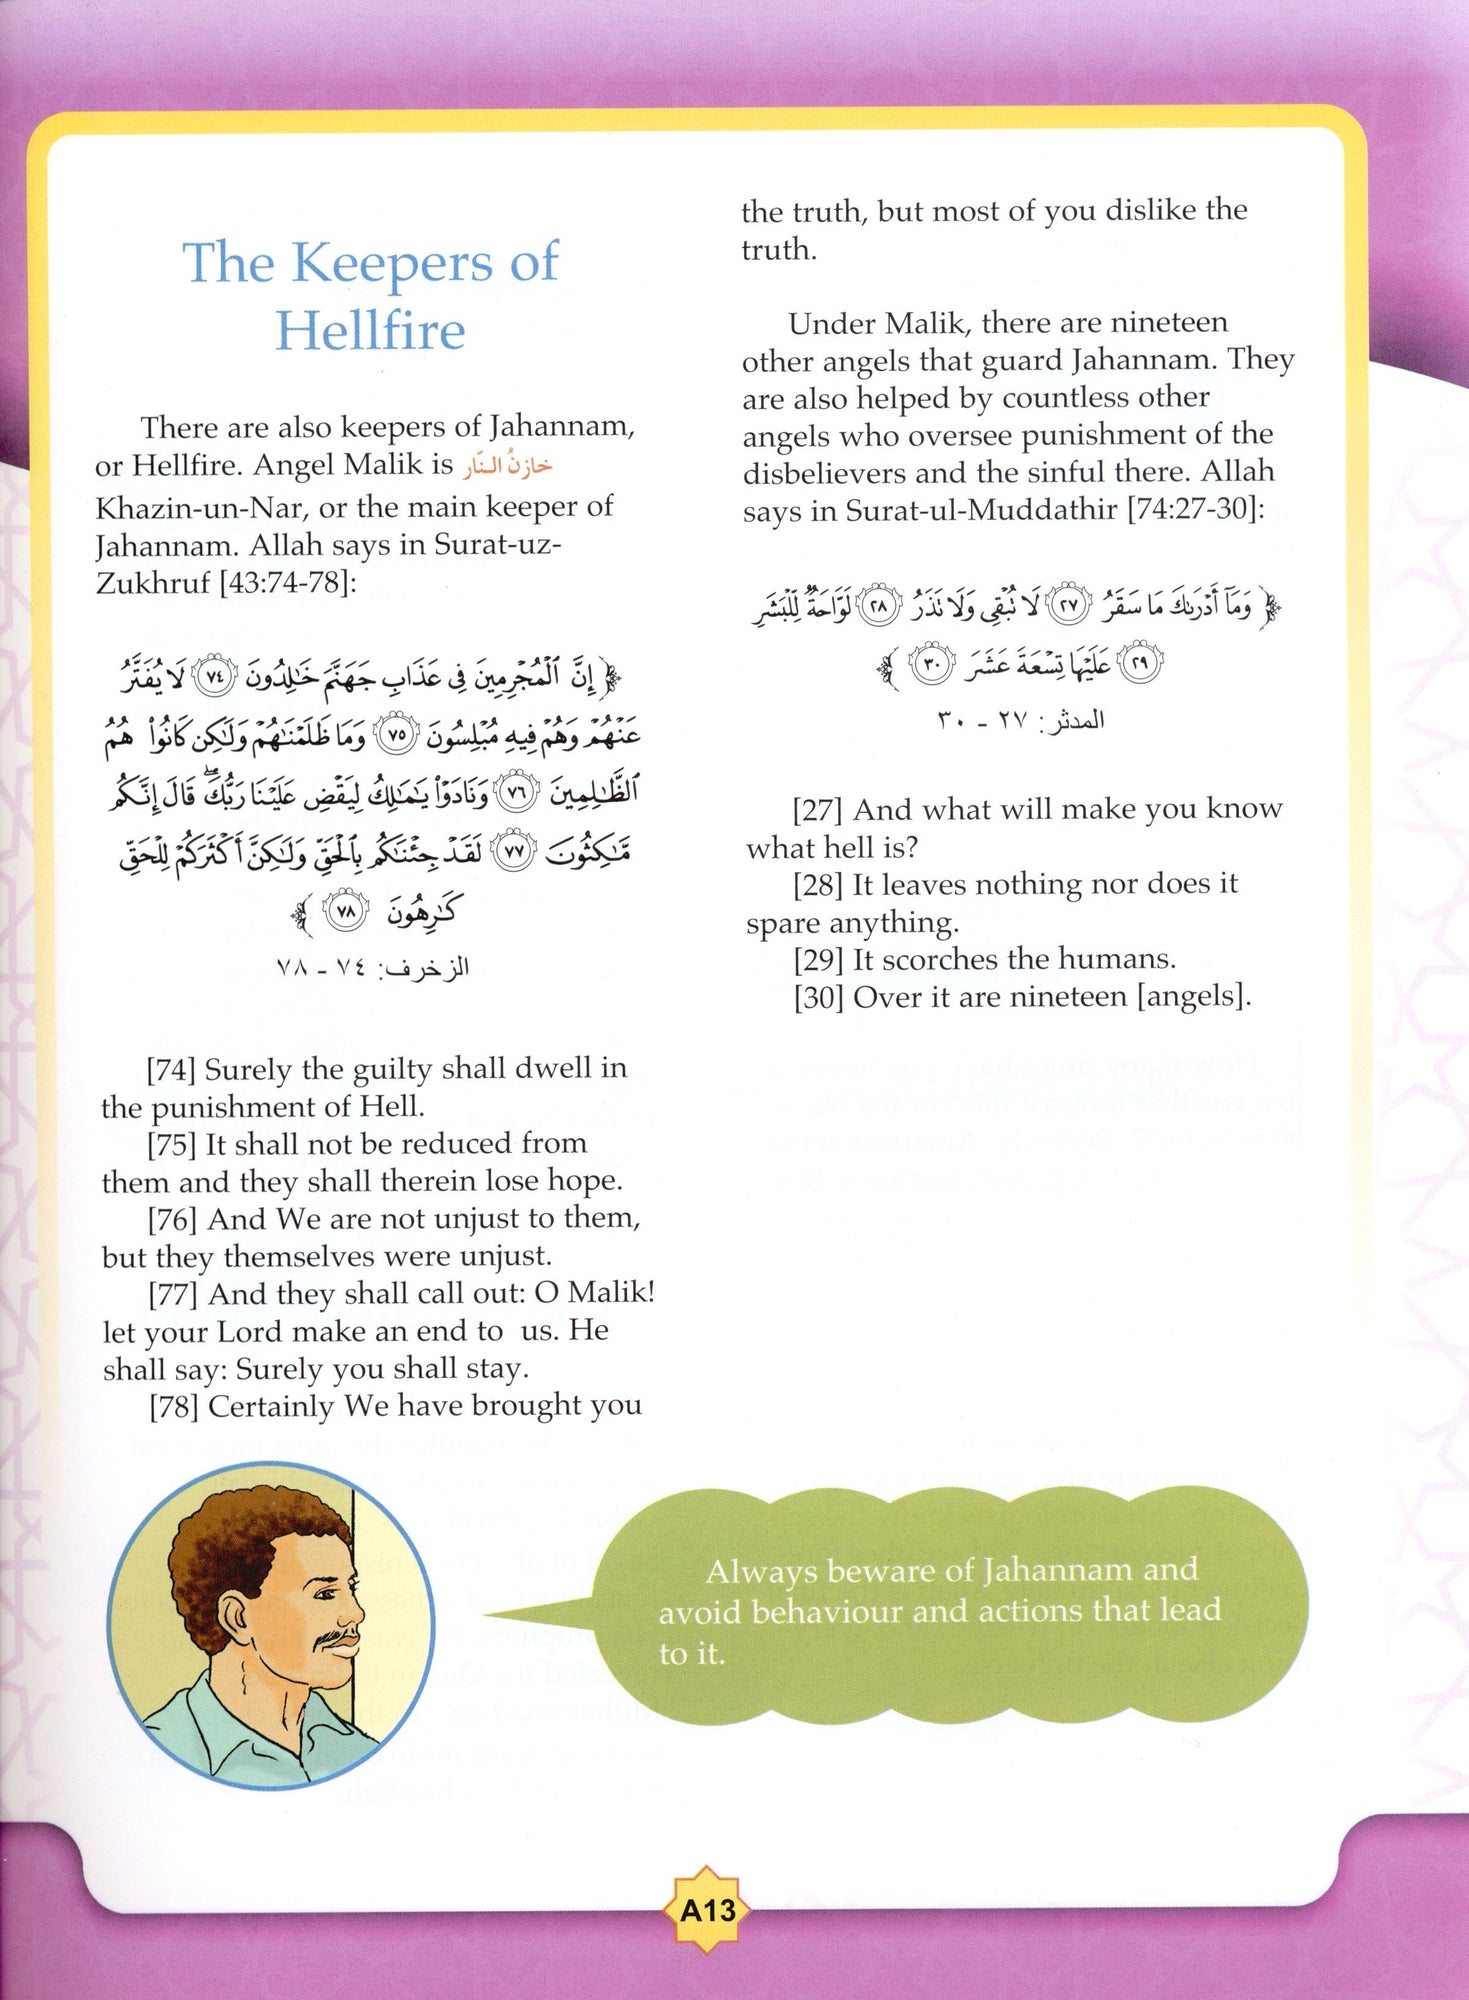 The Keepers of
Hellfire
There are also keepers of Jahannam,
or Hellfire. Angel Malik is خازنُ النّار
Khazin-un-Nar, or the main keeper of
Jahannam. Allah says in Surat-uz-
Zukhruf [43:74-78]:
﴿ إِنَّ ٱلْمُجْرِمِينَ فِى عَذَابِ جَهَنَّمَ خَٰلِدُونَ ٧٤ لَا يُفَتَّرُ
عَنْهُمْ وَهُمْ فِيهِ مُبْلِسُونَ ٧٥ وَمَا ظَلَمْنَٰهُمْ وَلَٰكِن كَانُوا۟ هُمُ
ٱلظَّٰلِمِينَ ٧٦ وَنَادَوْا۟ يَٰمَٰلِكُ لِيَقْضِ عَلَيْنَا رَبُّكَ ۖ قَالَ إِنَّكُم
مَّٰكِثُونَ ٧٧ لَقَدْ جِئْنَٰكُم بِٱلْحَقِّ وَلَٰكِنَّ أَكْثَرَكُمْ لِلْحَقِّ
كَٰرِهُونَ ٧٨ ﴾
الزخرف: ٧٤ - ٧٨
[74] Surely the guilty shall dwell in
the punishment of Hell.
[75] It shall not be reduced from
them and they shall therein lose hope.
[76] And We are not unjust to them,
but they themselves were unjust.
[77] And they shall call out: O Malik!
let your Lord make an end to us. He
shall say: Surely you shall stay.
[78] Certainly We have brought you
the truth, but most of you dislike the
truth.
Under Malik, there are nineteen
other angels that guard Jahannam. They
are also helped by countless other
angels who oversee punishment of the
disbelievers and the sinful there. Allah
says in Surat-ul-Muddathir [74:27-30]:
﴿ وَمَآ أَدْرَىٰكَ مَا سَقَرُ ٢٧ لَا تُبْقِى وَلَا تَذَرُ ٢٨ لَوَّاحَةٌ لِّلْبَشَرِ
٢٩ عَلَيْهَا تِسْعَةَ عَشَرَ ٣٠ ﴾
المدثر: ٢٧ - ٣٠
[27] And what will make you know
what hell is?
[28] It leaves nothing nor does it
spare anything.
[29] It scorches the humans.
[30] Over it are nineteen [angels].
Always beware of Jahannam and
avoid behaviour and actions that lead
to it.
A13